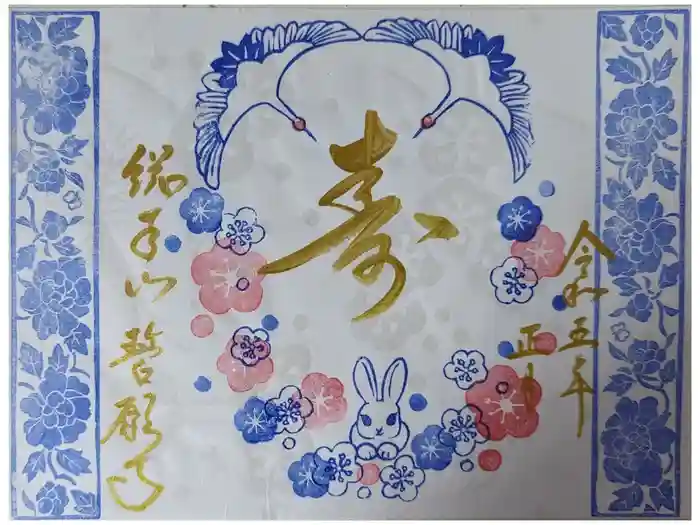 令和五年
正月
寿
総手山 誓願寺